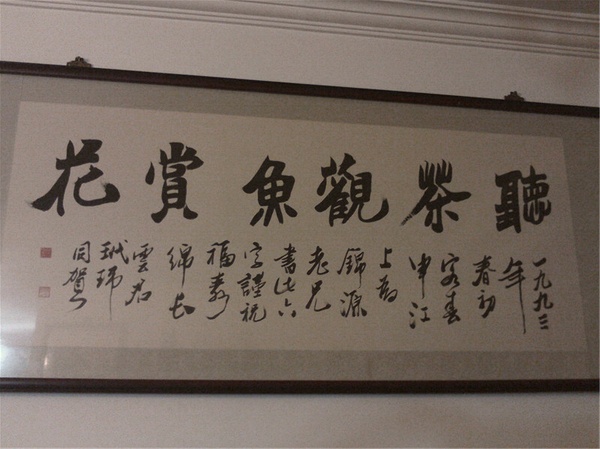 聽茶觀魚賞花
一九九三
年
春初
客春
申江
上為
錦源
老兄
書此六
字謹祝
福壽
綿長
雲君
瑋
同賀